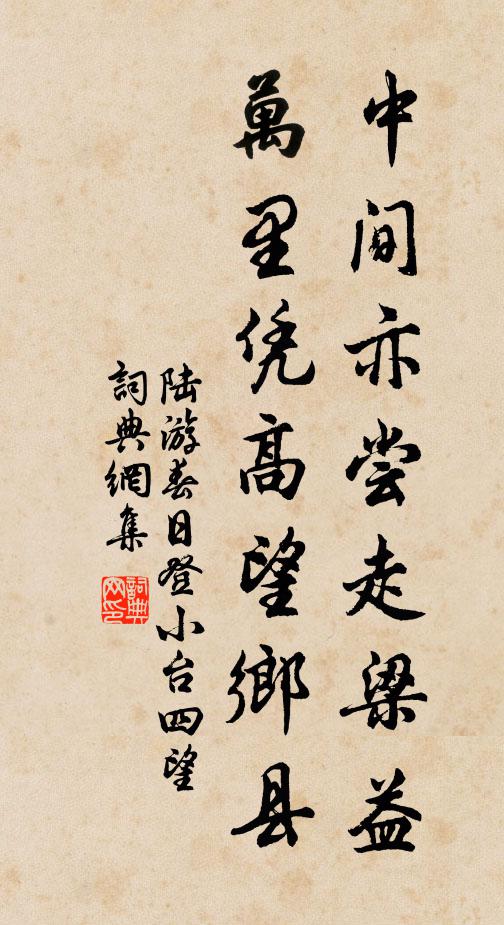 中间亦尝走梁益
萬里凭高望鄉县
陆游春日登小台四望
詞典網集
詞典网印